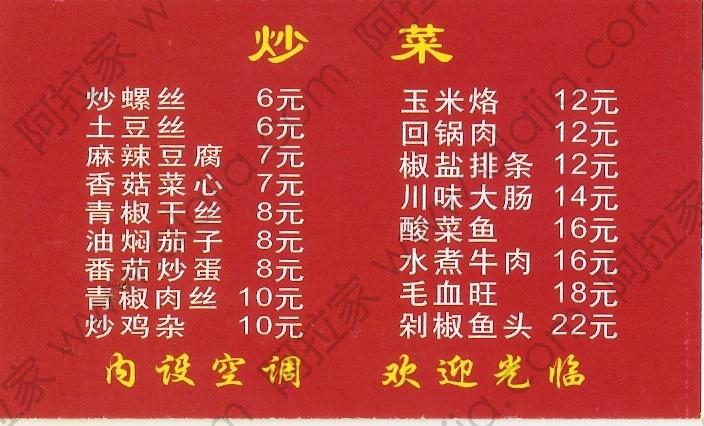 炒 菜
炒螺丝 6元
土豆丝 6元
麻辣豆腐 7元
香菇菜心 7元
青椒干丝 8元
油焖茄子 8元
番茄炒蛋 8元
青椒肉丝 10元
炒鸡杂 10元
玉米烙 12元
回锅肉 12元
椒盐排条 12元
川味大肠 14元
酸菜鱼 16元
水煮牛肉 16元
毛血旺 18元
剁椒鱼头 22元
内设空调 欢迎光临